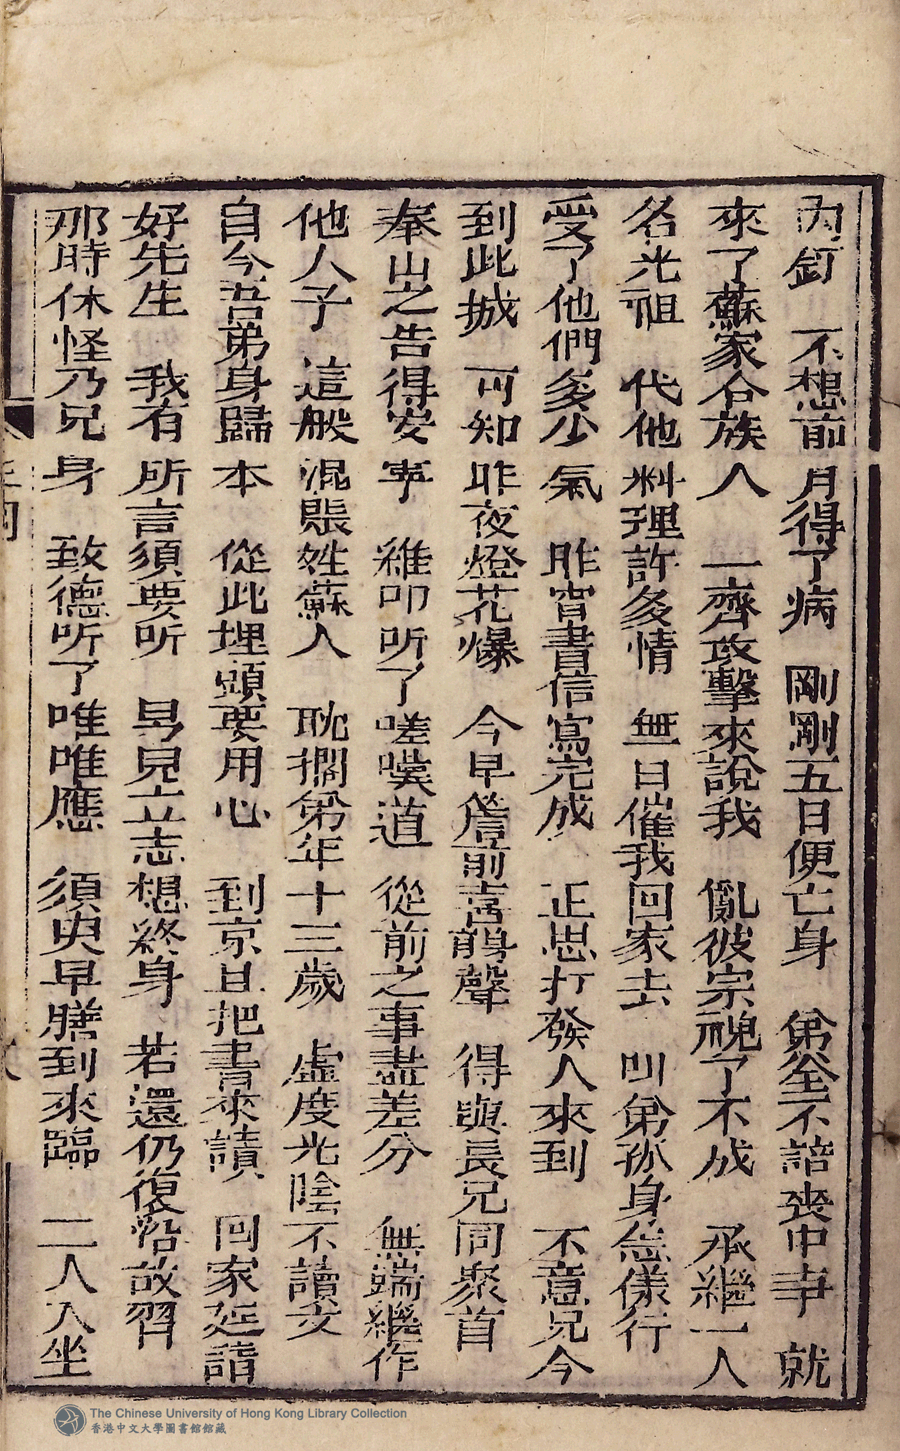 內釘　不想前月得了病　剛剛五日便亡身　弟參不諳喪中事　就
來了蘇家合族人　一齊攻擊來說我　亂彼宗視了不成　承繼一人
名光祖　代他料理許多情　無日催我回家去　叫弟孤身怎儀行
受了他們多少氣　昨宵書信寫完成　正思打發人來到　不意兄今
到此城　可知昨夜燈花爆　今早簷前喜鵲聲　得與長兄同眾首
奉山之告得安寧　維叩听了嗟嘆道　從前之事盡差分　無端繼作
他人子　這般混賬姓蘇人　耽擱弟年十三歲　虛度光陰不讀文
自今吾弟身歸本　從此埋頭要用心　到京且把書來讀　回家延請
好先生　我有所言須要听　早見立志想終身　若還仍復沿故習
那時休怪乃兄身　致德听了唯唯應　須臾早膳到來臨　二人入坐
The Chinese University of Hong Kong Library Collection
香港中文大學圖書館館藏